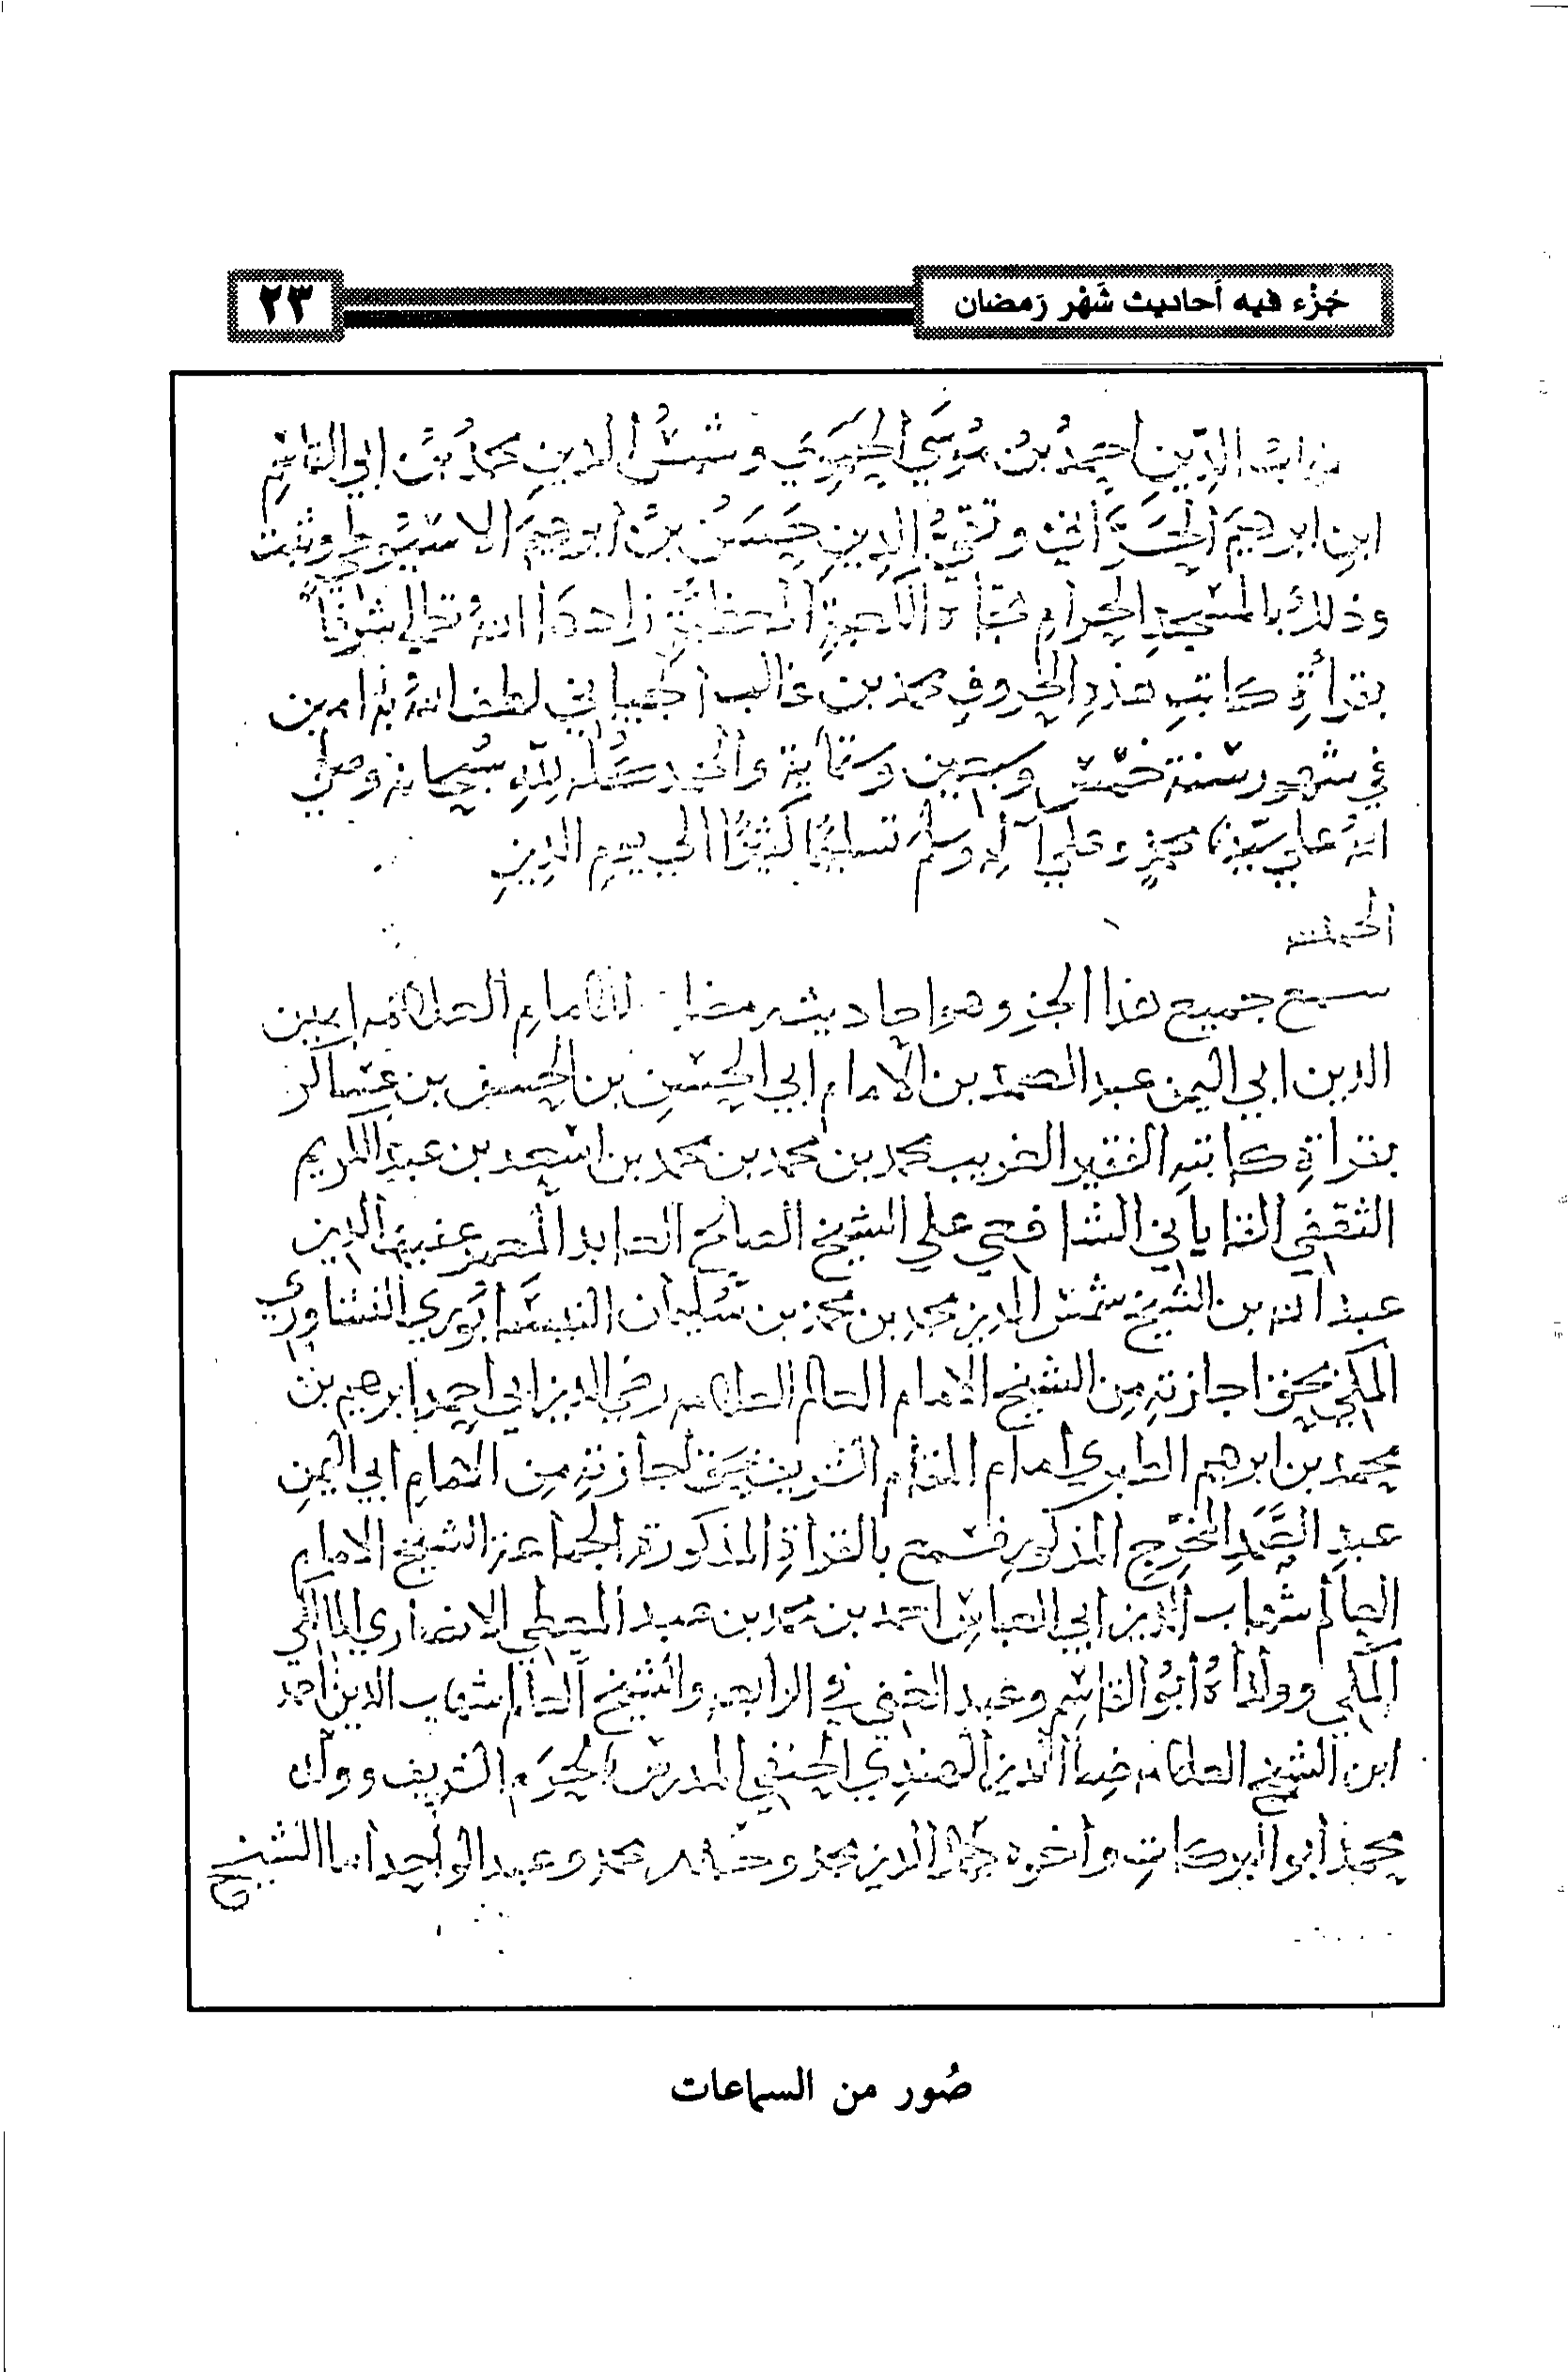 جُزْء فيه أَحاديث شَهْر رَمضان
٢٣
الدين احمد بن موسى وشمس الدين محمد بن ابي القاسم
ابن ابرهيم الحراني وتقي الدين حسن بن ابرهيم الاسيوطي وثبت
وذلك بالمسجد الحرام تجاه الكعبة المعظمة زادها الله تعالى شرفا
بقراة كاتب هذه الحروف محمد بن غالب الجياني لطف الله به امين
في شهور سنة خمس وستين وستماية والحمد كله لله سبحانه وصلى
الله على سيدنا محمد وعلى آله وسلم تسليما كثيرا الى يوم الدين
الحمد لله
سمع جميع هذا الجزو وهو احاديث رمضان للامام العلامة امين
الدين ابي اليمن عبد الصمد بن الامام ابي الحسن بن الحسن بن عساكر
بقراة كاتبه الفقير الغريب محمد بن محمد بن محمد بن اسعد بن عبد الكريم
الثقفي القاياتي الشافعي على الشيخ الصالح العابد المعمر عفيف الدين
عبد الله بن الشيخ شمس الدين محمد بن محمد بن سليمان النيسابوري النشاوري
المكي بحق اجازته من الشيخ الامام العالم العلامة رضي الدين ابي احمد ابرهيم بن
محمد بن ابرهيم الطبري امام المقام الشريف بحق اجازته من الامام ابي اليمن
عبد الصمد المخرج المذكور فسمع بالقراة المذكورة الجماعة الشيخ الامام
العالم شهاب الدين ابي العباس احمد بن محمد بن عبد المعطي الانصاري المالكي
المكي وولداه أبو القاسم وعبد الغني في الرابعة والشيخ العالم شهاب الدين احمد
ابن الشيخ العلامة ضيا الدين الهندي الحنفي المدرس بالحرم الشريف وولده
محمد أبو البركات وأخوه جمال الدين محمد محمد وعبد الواحد اما الشيخ
صُور من السماعات